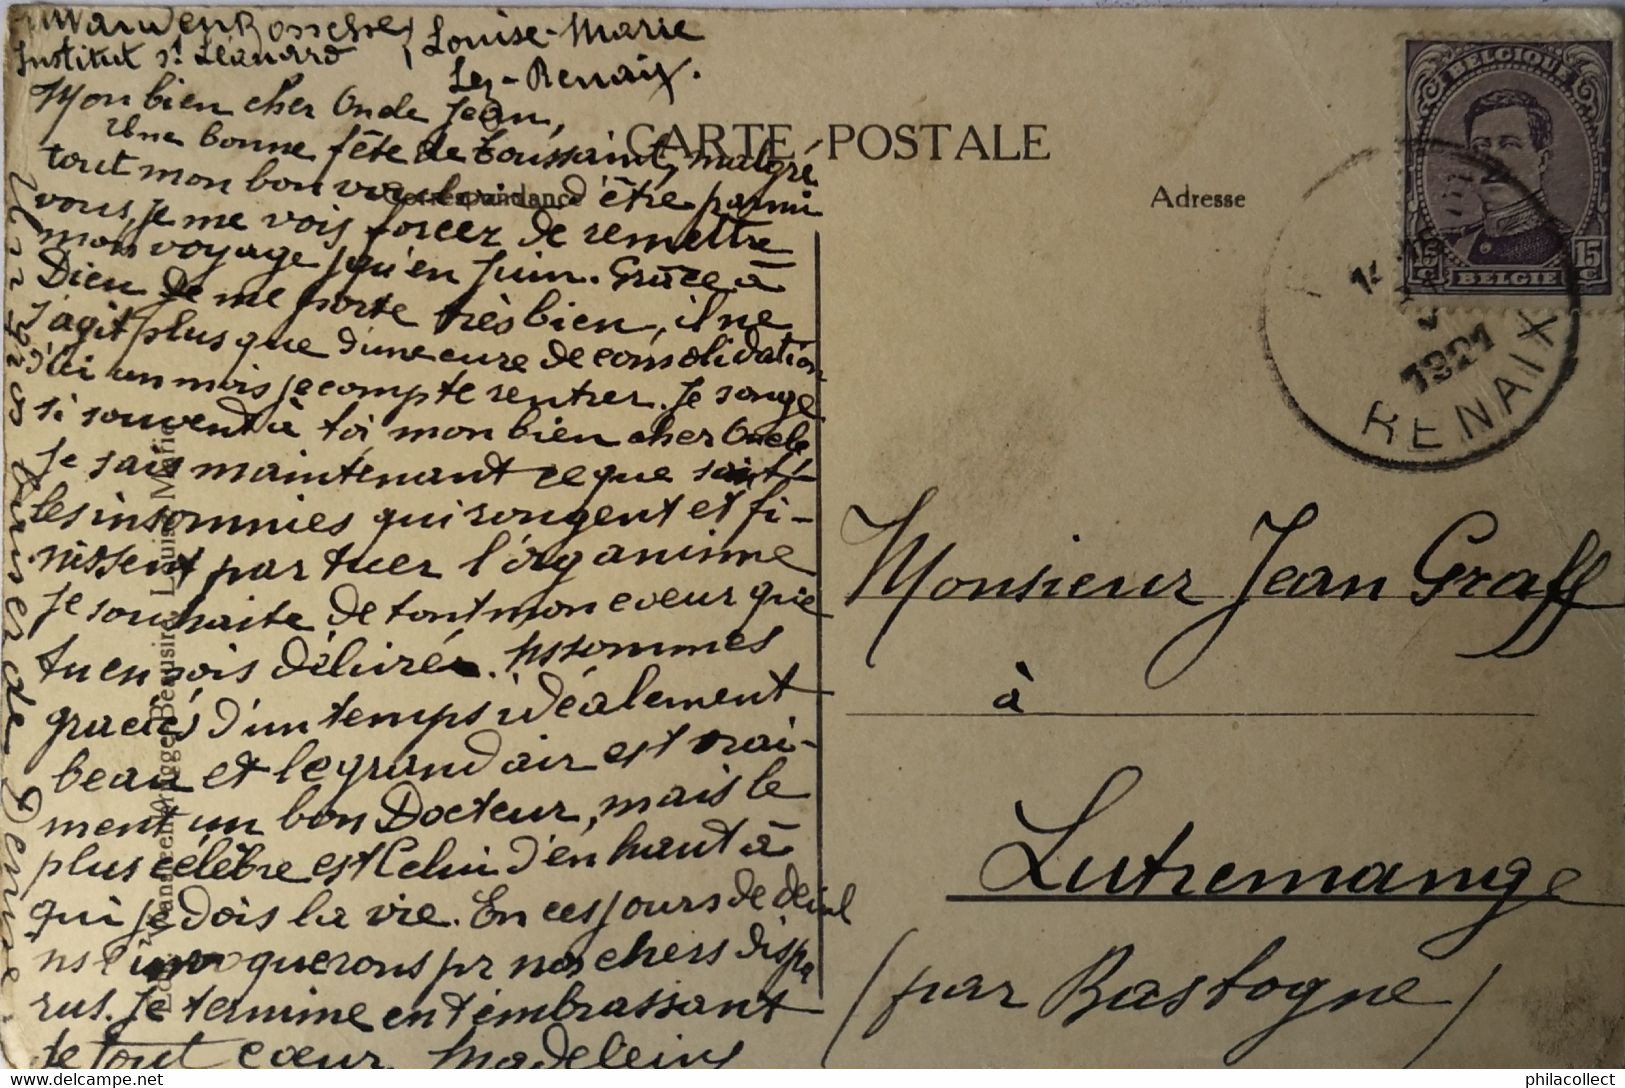 Institut St Léonard, Louise-Marie
Lez-Renaix.
Mon bien cher Oncle Jean,
Une bonne fête de Toussaint, malgré
tout mon bon vouloir d'être parmi
vous, je me vois forcée de remettre
mon voyage jqu'en Juin. Grâce à
Dieu je me porte très bien, il ne
s'agit plus que d'une cure de consolidation
d'ici un mois je compte rentrer. Je songe
si souvent à toi mon bien cher Oncle
Je sais maintenant ce que sont
les insomnies qui rongent et fi-
nissent par tuer l'organisme
Je souhaite de tout mon coeur que
tu en sois délivré. Ns sommes
graciés d'un temps idéalement
beau et le grand air est vrai-
ment un bon Docteur, mais le
plus célèbre est Celui d'en haut à
qui je dois la vie. En ces jours de deuil
ns l'invoquerons pr nos chers dispa
rus. Je termine en t'embrassant
de tout coeur Madeleine
Un gros baiser de
CARTE POSTALE
Correspondance
Adresse
BELGIQUE
15 C
15 C
BELGIE
1921
RENAIX
Monsieur Jean Graff
à
Lutremange
(par Bastogne)
philacollect